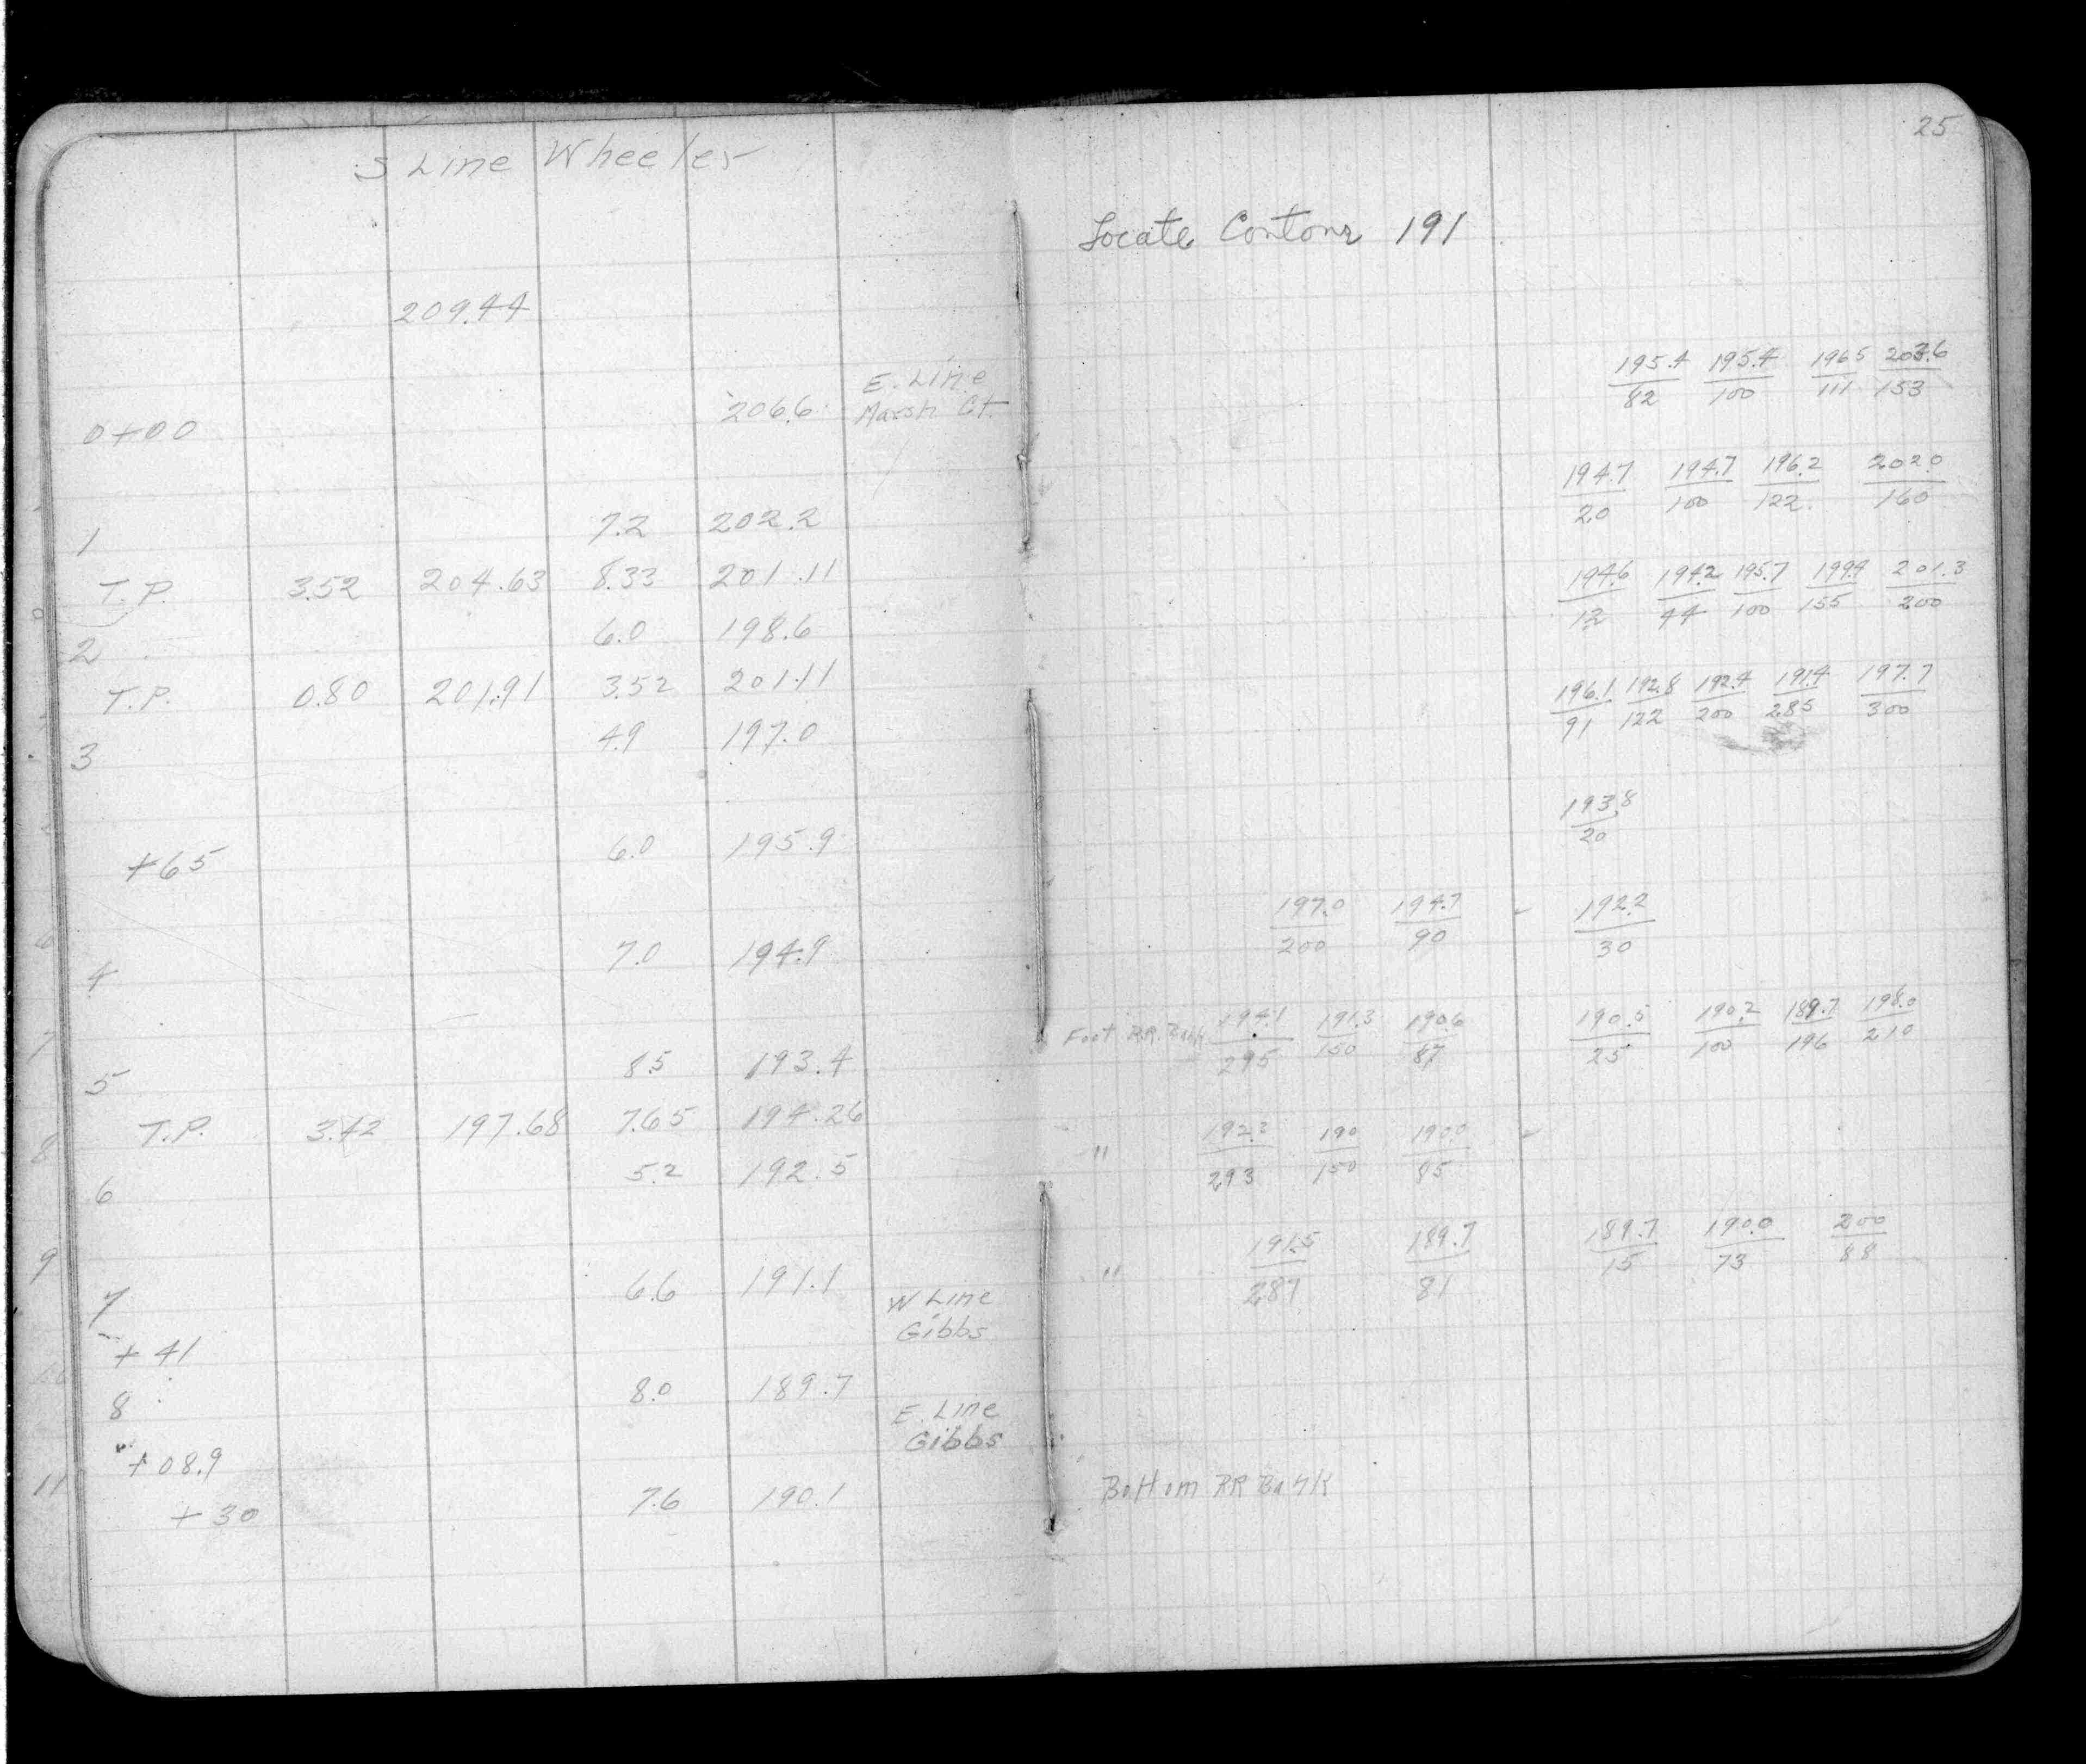 S Line Wheeler
209.44
E. Line
0+00 206.6 Marsh Ct.
1 7.2 202.2
T.P. 3.52 204.63 8.33 201.11
2 6.0 198.6
T.P. 0.80 201.91 3.52 201.11
3 4.9 197.0
+65 6.0 195.9
4 7.0 194.9
5 8.5 193.4
T.P. 3.42 197.68 7.65 194.26
6 5.2 192.5
7 6.6 191.1
W Line
+41 Gibbs
8 8.0 189.7
E. Line
+08.9 Gibbs
+30 7.6 190.1
25
Locate Contour 191
195.4 195.4 196.5 203.6
82 100 111 153
194.7 194.7 196.2 202.0
20 100 122 160
194.6 194.2 195.7 199.4 201.3
12 44 100 155 200
196.1 192.8 192.4 191.4 197.7
91 122 200 285 300
193.8
20
197.0 194.7 192.2
200 90 30
Foot R.R. Bank 194.1 191.3 190.6 190.5 190.2 189.7 198.0
295 150 87 25 100 196 210
" 192.2 190 190.0
293 150 85
" 191.5 189.7 189.7 190.0 200
287 81 15 73 88
Bottom RR Bank